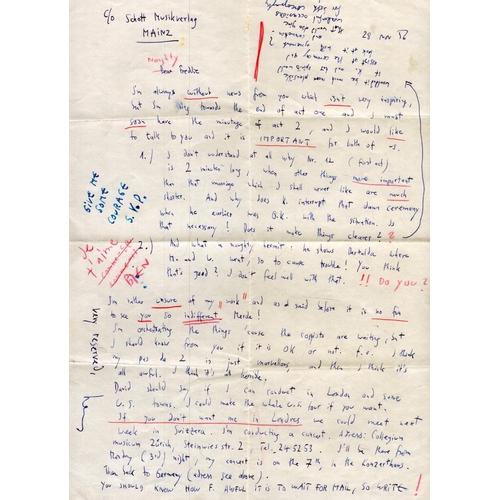 c/o Schott Musikverlag
MAINZ
28 Nov 57
Naughty
Dear Freddie
I'm always without news from you which isn't very inspiring,
but I'm towards the end of act one and I must
soon have the minutage of act 2, and I would like
to talk to you and it is IMPORTANT for both of us.
1.) I don't understand at all why Nr. 12 (first act)
is 2 minutes long, when other things more important
than that marriage which I shall never like are much
shorter. And why does K. interrupt that dawn ceremony
when he earlier was O.K. with the situation. Is
that necessary? Does it make things clearer??
GIVE ME
SOME
COURAGE
S.V.P.
2.) And what a naughty hermit: he shows
H. and U. went, so to cause trouble! You think
that's good? I don't feel well with that. !! DO YOU?
Je
t'aime
I'm rather unsure of my "work" and as I said before it is no fun
to see you so indifferent. Merde!
I'm orchestrating the things 'cause the copists are waiting, but
I should know from you if it is OK or not. f.e. I think
my pas de 2 is just marvellous, and then I think it's
all awful. I think it's terrible.
David should say if I can conduct in London and some
U.S. towns. I could make the whole U.S. tour if you want.
If you don't want me in Londres, we could meet next
week in Switzerland. I'm conducting a concert. Adress: Collegium
musicum Zürich, Steinwies str. 2, Tel. 245253. I'll be there from
Monday (3rd) night, my concert is on the 7th, in the Konzerthaus.
Then back to Germany (adress see above).
YOU SHOULD KNOW HOW F. AWFUL IT IS TO WAIT FOR MAIL, SO WRITE!
very reserved,